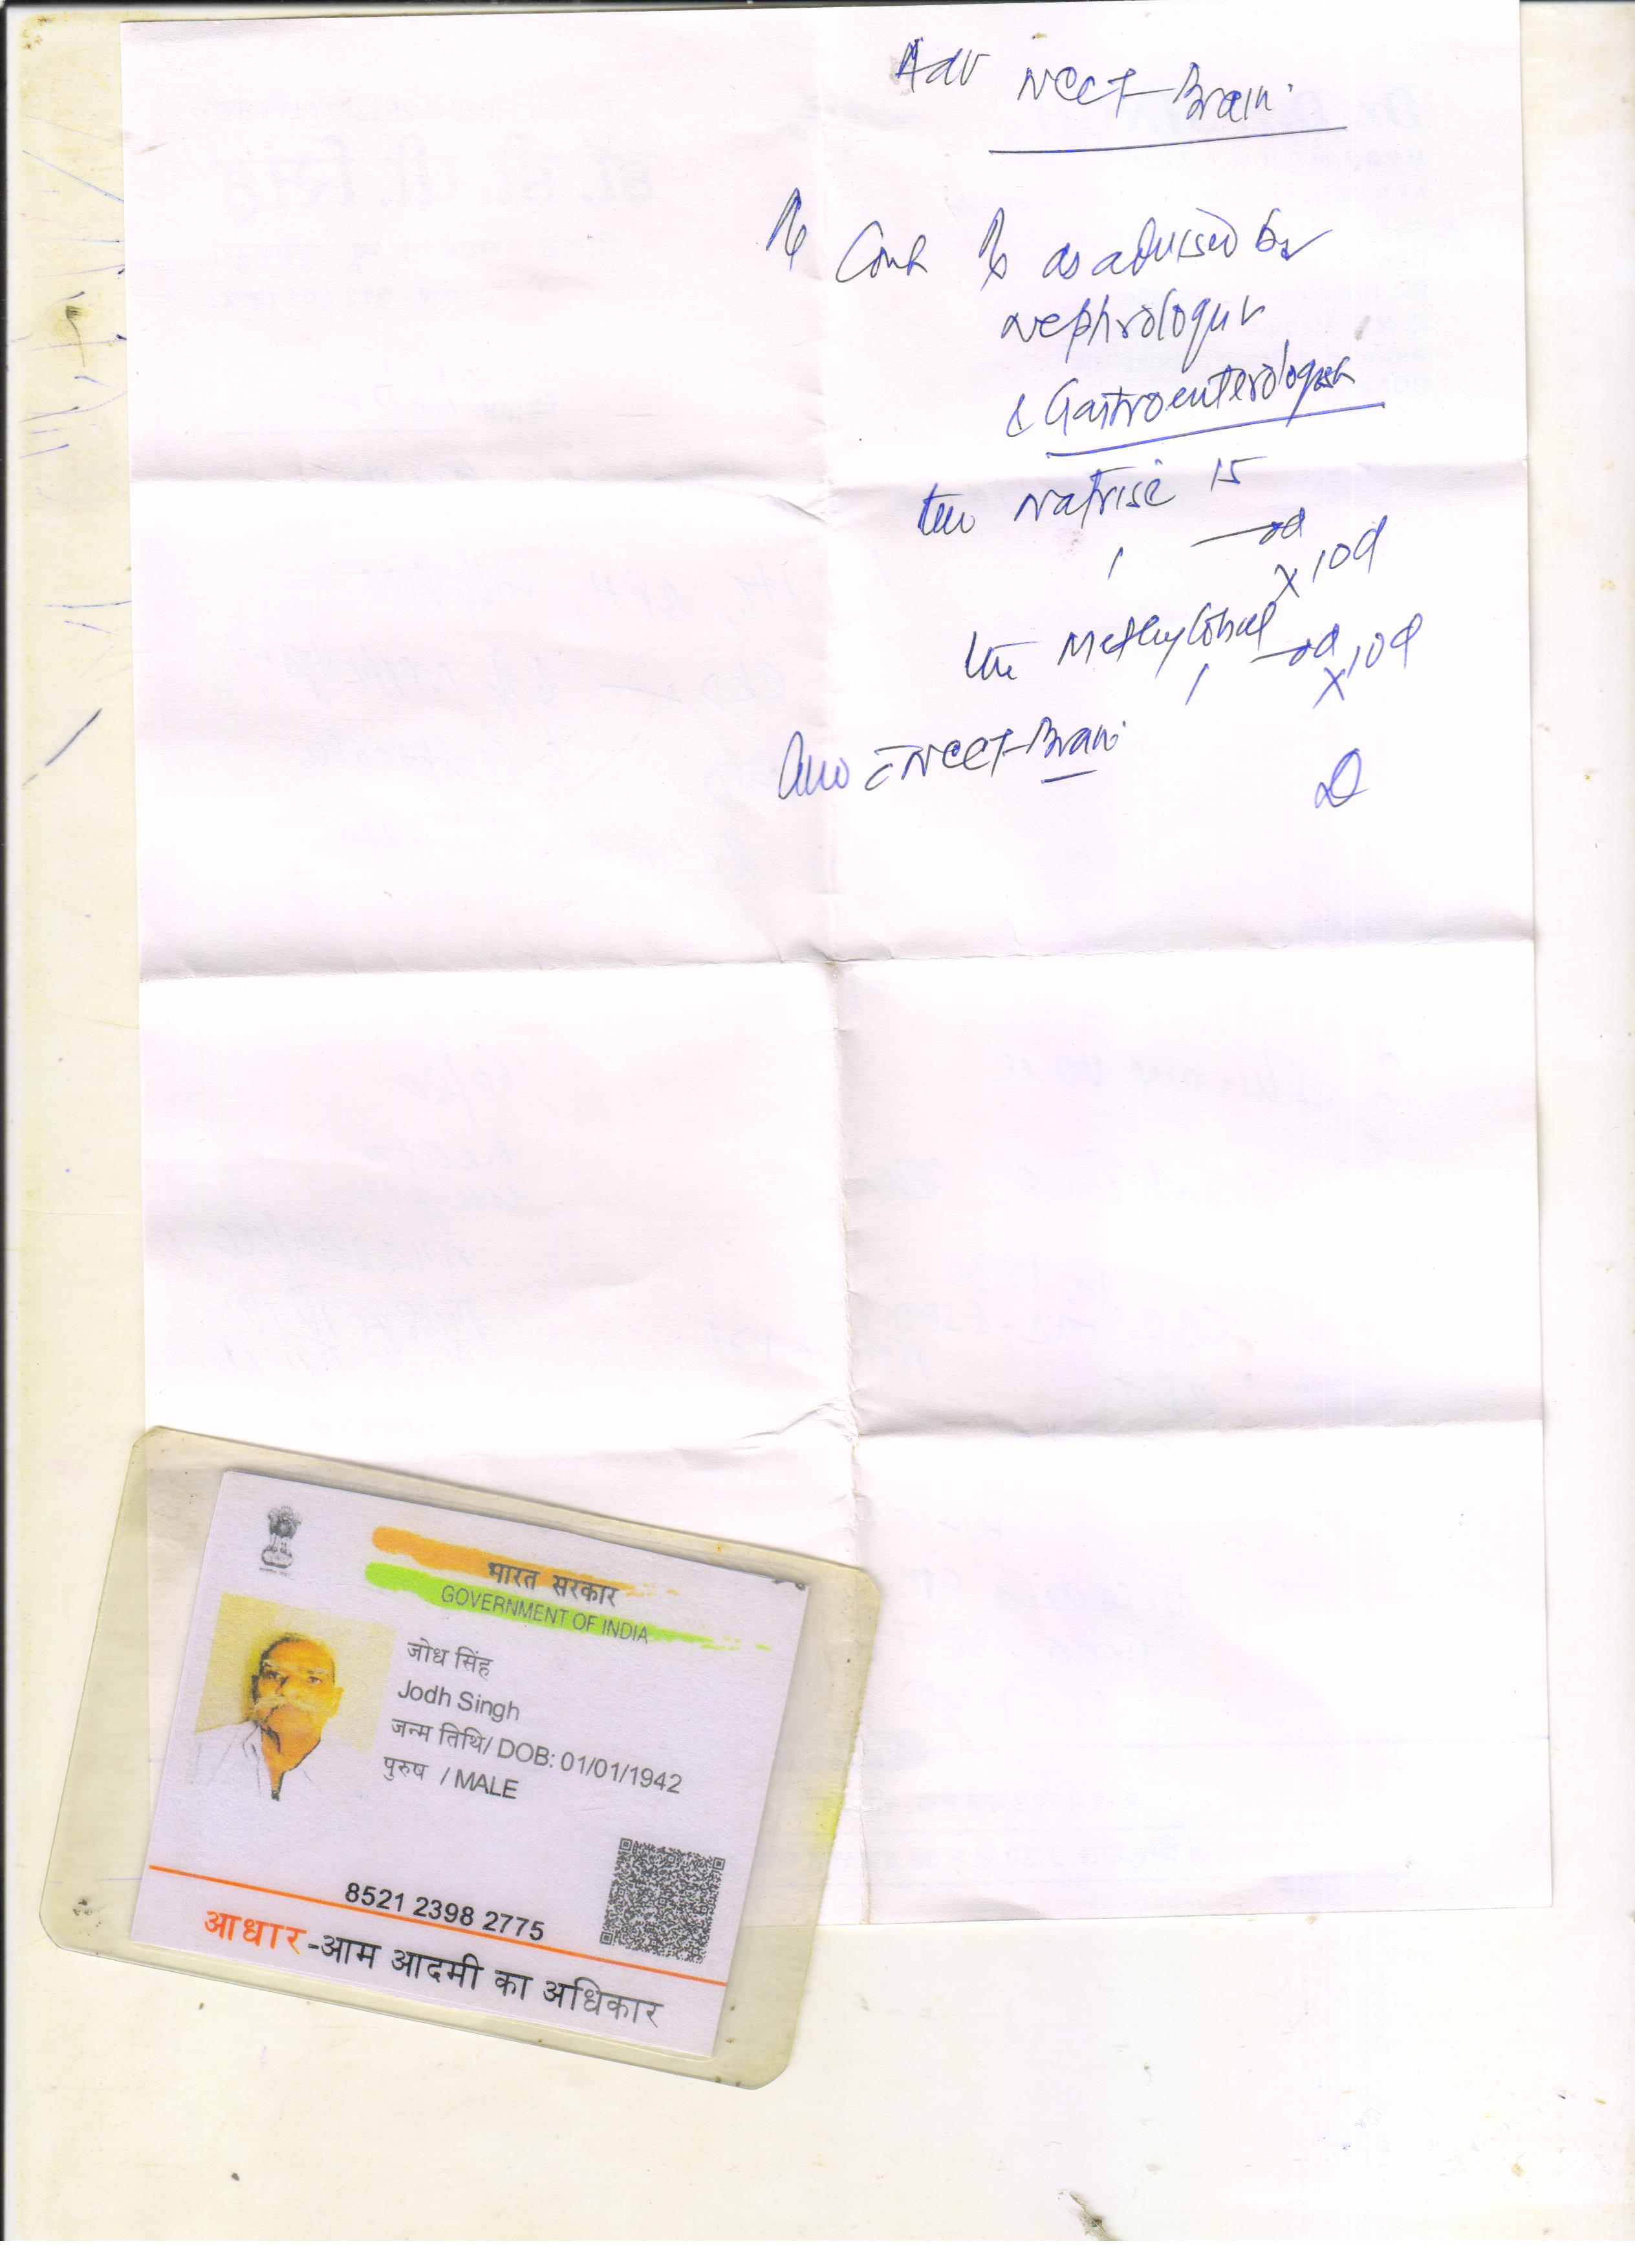 Adv NCCT-Brain.
Rx Cont Rx as advised by
Nephrologist
& Gastroenterologist
Natrise 15
1 → od
x 10d
Methylcobal
1 → od
x 10d
NCCT-Brain.
भारत सरकार
GOVERNMENT OF INDIA
जोध सिंह
Jodh Singh
जन्म तिथि/ DOB: 01/01/1942
पुरुष / MALE
8521 2398 2775
आधार-आम आदमी का अधिकार